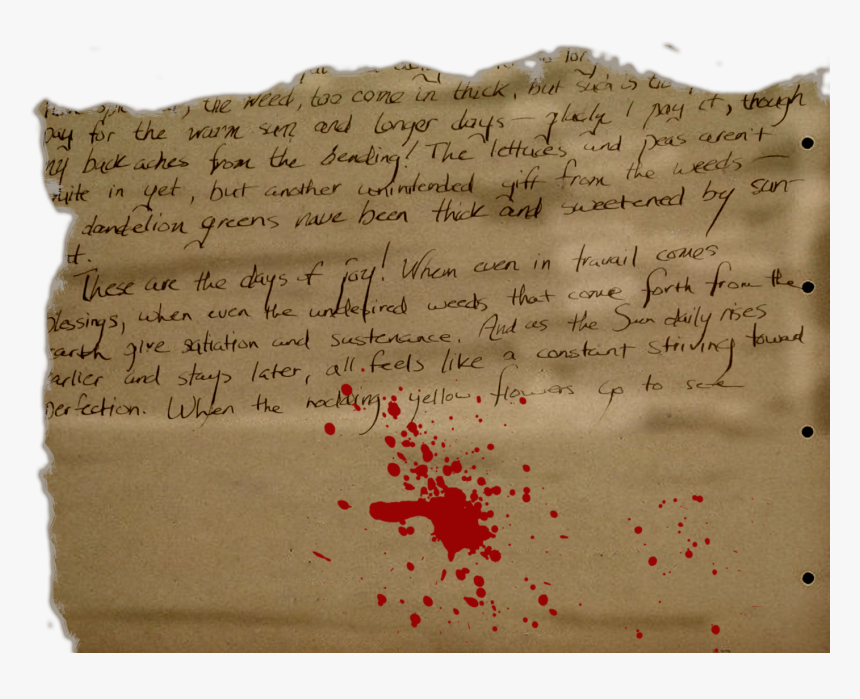 for
the weed, too come in thick, but such is
pay for the warm sun and longer days — gladly I pay it, though
my back aches from the bending! The lettuces and peas aren't
quite in yet, but another unintended gift from the weeds —
dandelion greens have been thick and sweetened by sun-
These are the days of joy! When even in travail comes
blessings, when even the undesired weeds that come forth from the
earth give satiation and sustenance. And as the Sun daily rises
earlier and stays later, all feels like a constant striving toward
perfection. When the nodding yellow flowers go to seed